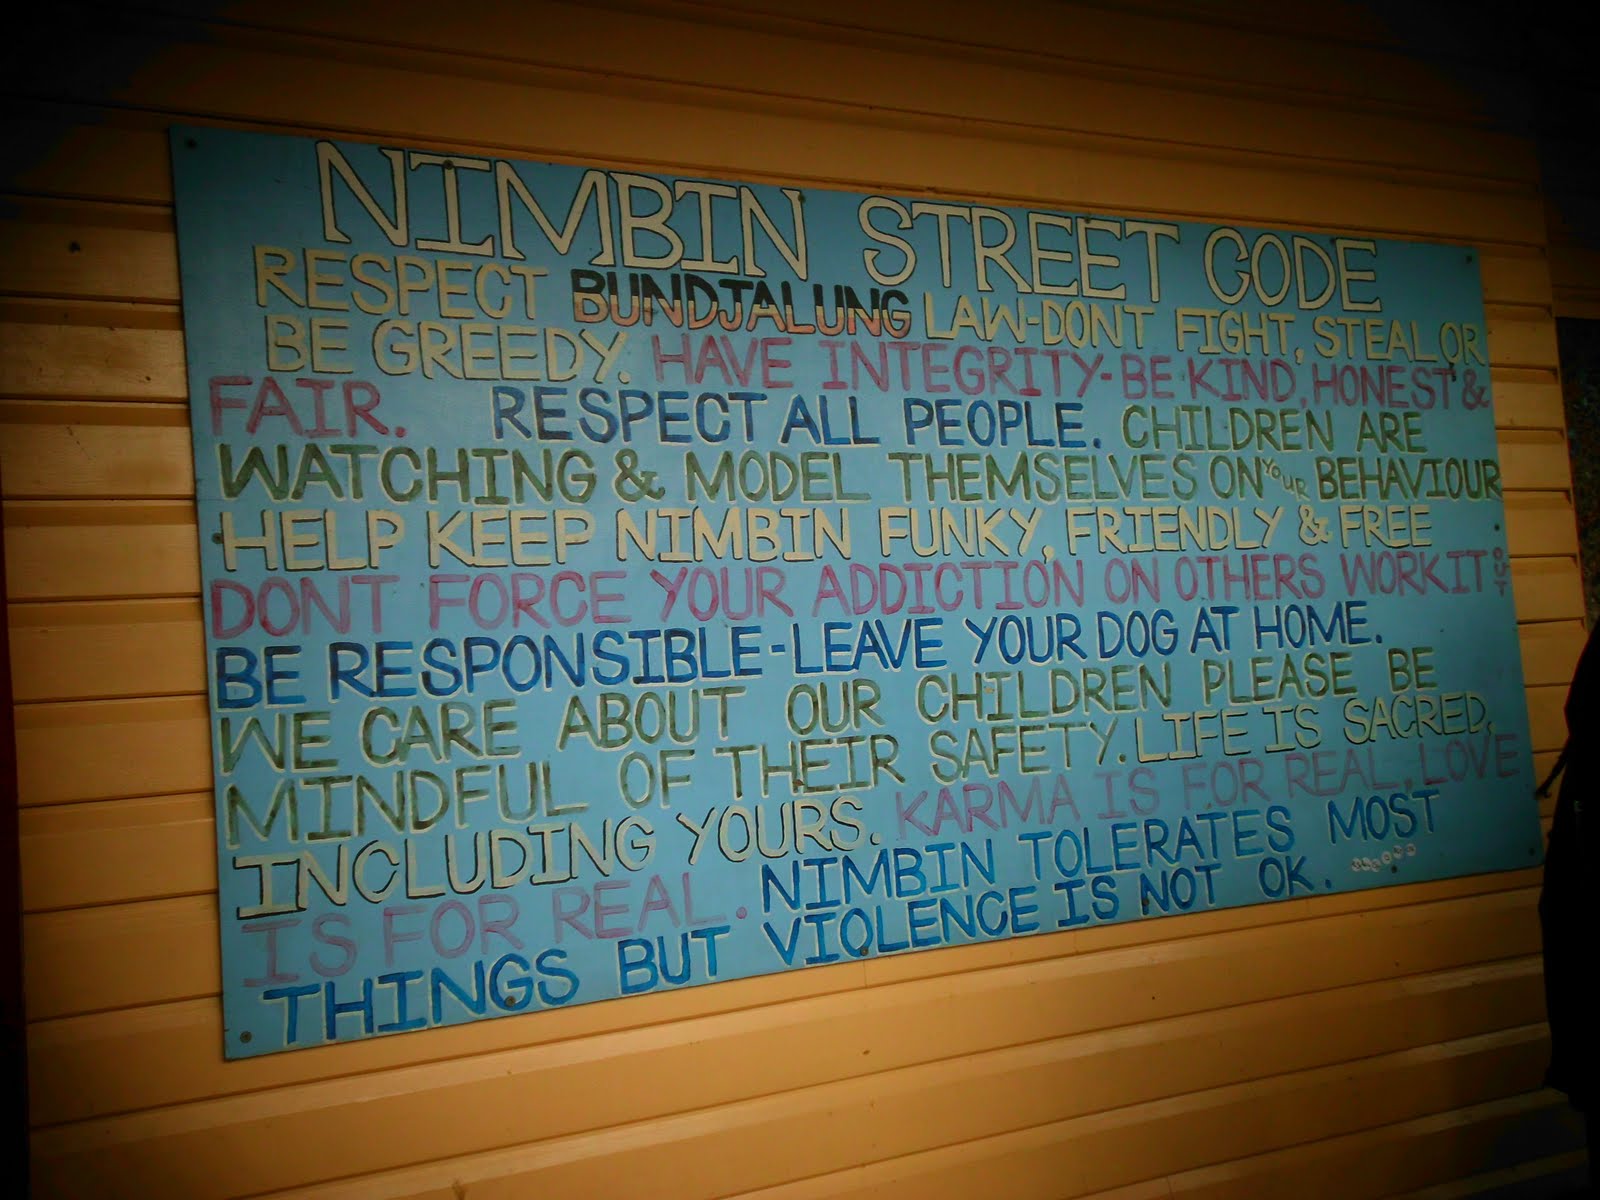 NIMBIN STREET CODE
RESPECT BUNDJALUNG LAW-DONT FIGHT, STEAL OR
BE GREEDY. HAVE INTEGRITY-BE KIND, HONEST &
FAIR. RESPECT ALL PEOPLE. CHILDREN ARE
WATCHING & MODEL THEMSELVES ON YOUR BEHAVIOUR
HELP KEEP NIMBIN FUNKY, FRIENDLY & FREE
DONT FORCE YOUR ADDICTION ON OTHERS WORK IT OUT
BE RESPONSIBLE-LEAVE YOUR DOG AT HOME.
WE CARE ABOUT OUR CHILDREN PLEASE BE
MINDFUL OF THEIR SAFETY. LIFE IS SACRED,
INCLUDING YOURS. KARMA IS FOR REAL, LOVE
IS FOR REAL. NIMBIN TOLERATES MOST
THINGS BUT VIOLENCE IS NOT OK.